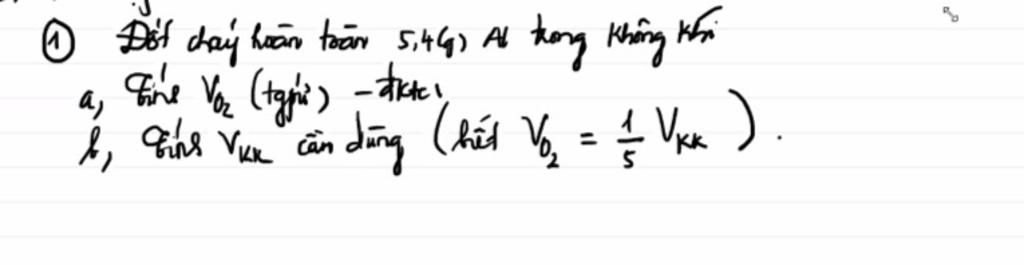 ① Đốt cháy hoàn toàn 5,4(g) Al trong không khí
a, Tính V_{O_2} (tgpứ) - đktc.
b, Tính V_{KK} cần dùng (biết V_{O_2} = \frac{1}{5} V_{KK}).